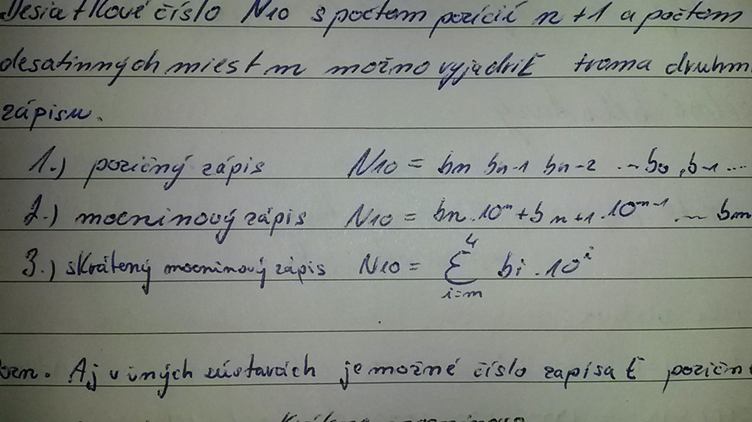 Desiatkové číslo N10 s počtom pozícií n+1 a počtom
desatinných miest m možno vyjadriť troma druhmi
zápisu.
1.) pozičný zápis N10 = bn bn-1 bn-2 ... b0, b-1 ...
2.) mocninový zápis N10 = bn.10^n + bn+1.10^n-1 ... bm
3.) skrátený mocninový zápis N10 = Σ 4 i=m bi.10^i
Aj v iných sústavách je možné číslo zapísať